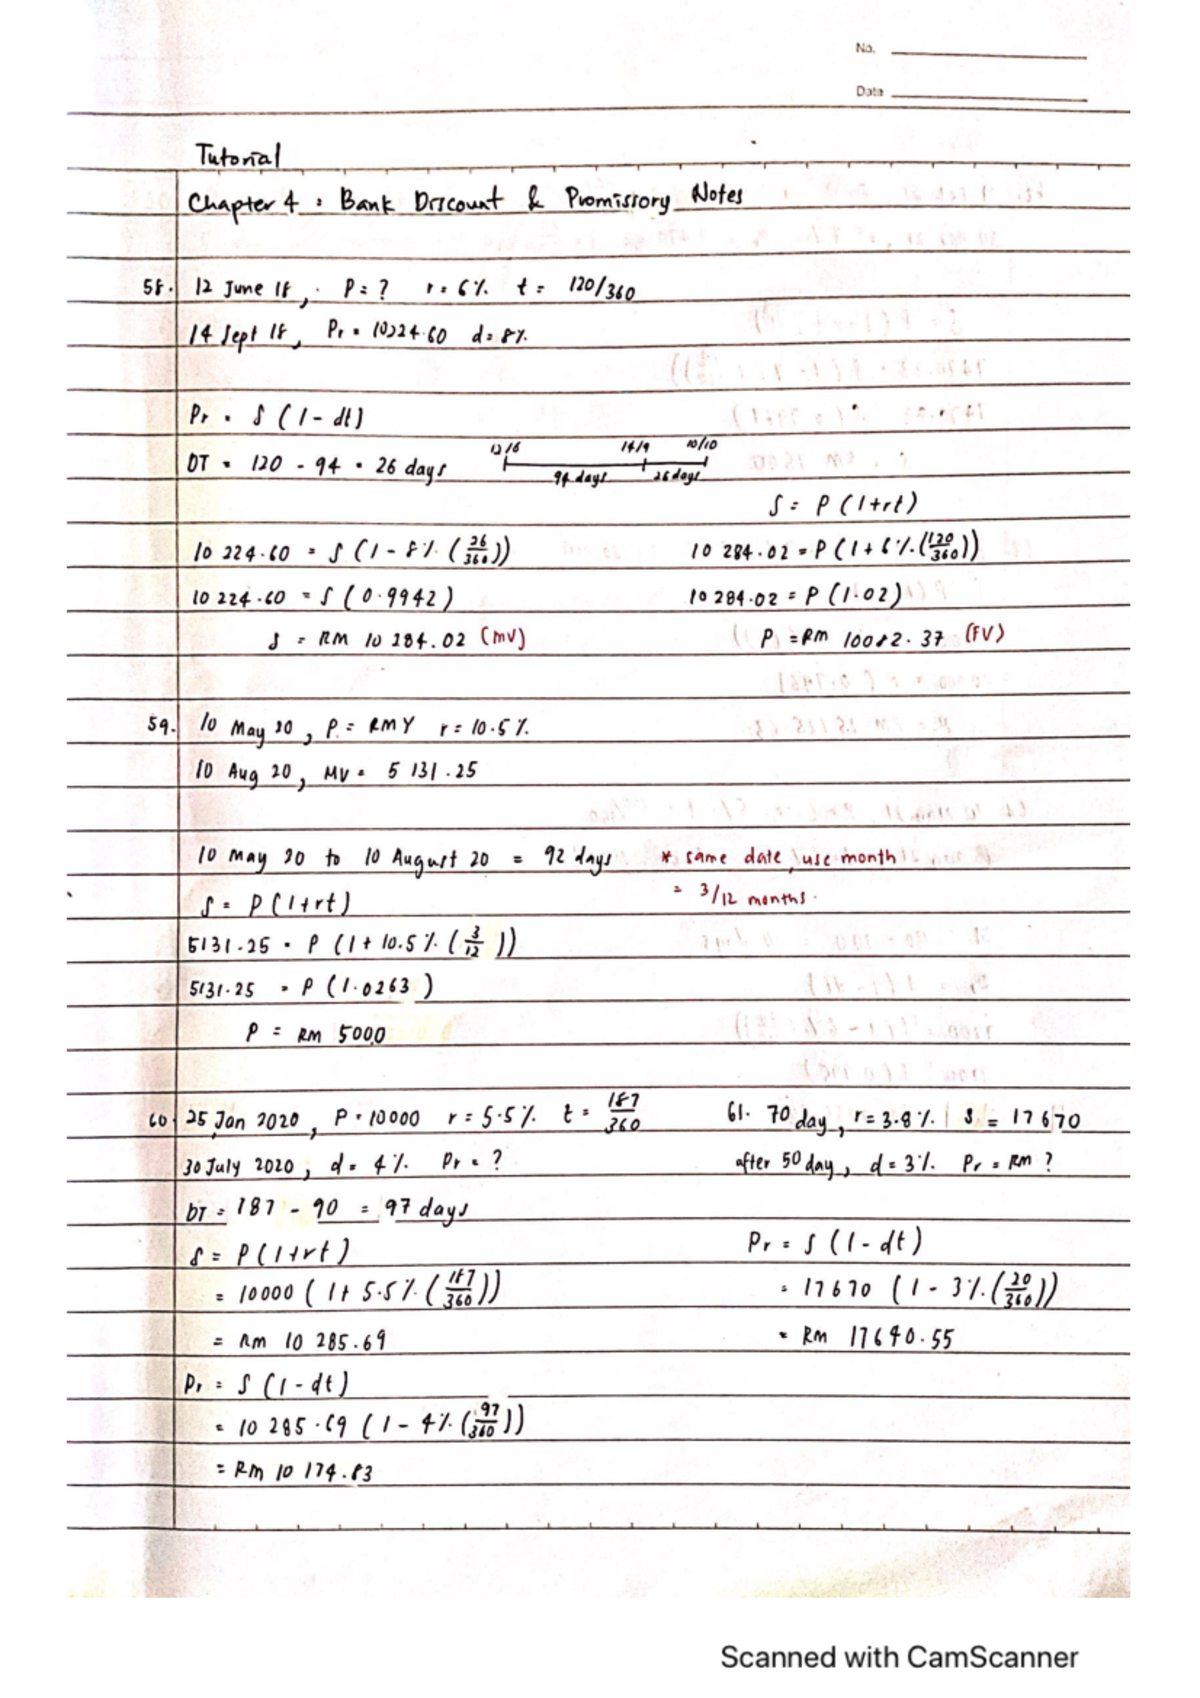 No.
Date
Tutorial
Chapter 4 : Bank Discount & Promissory Notes
58. 12 June 18, P = ? r = 6% t = 120/360
14 Sept 18, Pr = 10224.60 d = 8%
Pr = S (1 - dt)
DT = 120 - 94 = 26 days
12/6 14/9 10/10
94 days 26 days
S = P (1+rt)
10 224.60 = S (1 - 8% (26/360))
10 224.60 = S (0.9942)
S = RM 10 284.02 (MV)
10 284.02 = P (1 + 6% (120/360))
10 284.02 = P (1.02)
P = RM 10082.37 (FV)
59. 10 May 20, P = RMY r = 10.5%
10 Aug 20, MV = 5 131.25
10 May 20 to 10 August 20 = 92 days * same date, use month
= 3/12 months.
S = P (1+rt)
5131.25 = P (1 + 10.5% (3/12))
5131.25 = P (1.0263)
P = RM 5000
60. 25 Jan 2020, P = 10000 r = 5.5% t = 187/360
30 July 2020, d = 4% Pr = ?
DT = 187 - 90 = 97 days
S = P (1+rt)
= 10000 (1+ 5.5% (187/360))
= RM 10 285.69
Pr = S (1-dt)
= 10 285.69 (1 - 4% (97/360))
= RM 10 174.83
61. 70 day, r = 3.8% S = 17670
after 50 day, d = 3% Pr = RM ?
Pr = S (1 - dt)
= 17670 (1 - 3% (20/360))
= RM 17640.55
Scanned with CamScanner